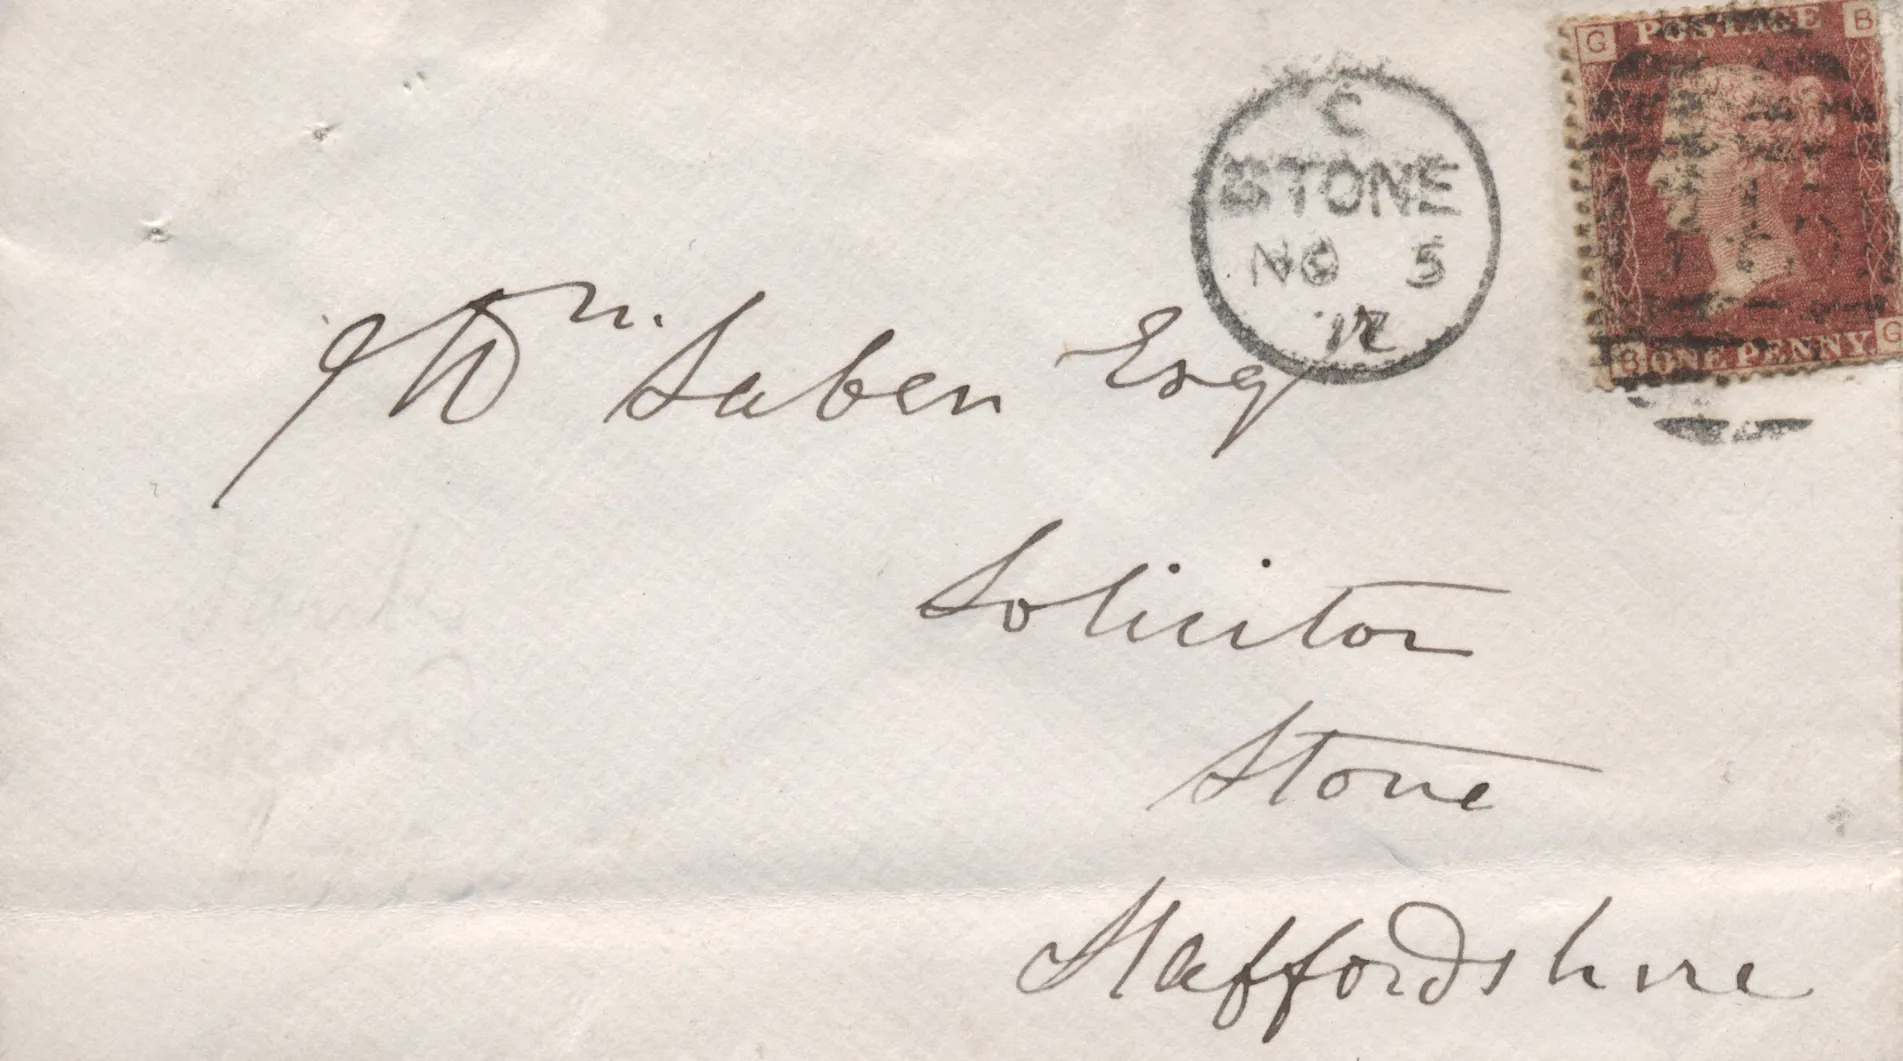 G POSTAGE B
C
STONE
NO 5
B ONE PENNY G
Wm. Saben Esq
Solicitor
Stone
Staffordshire